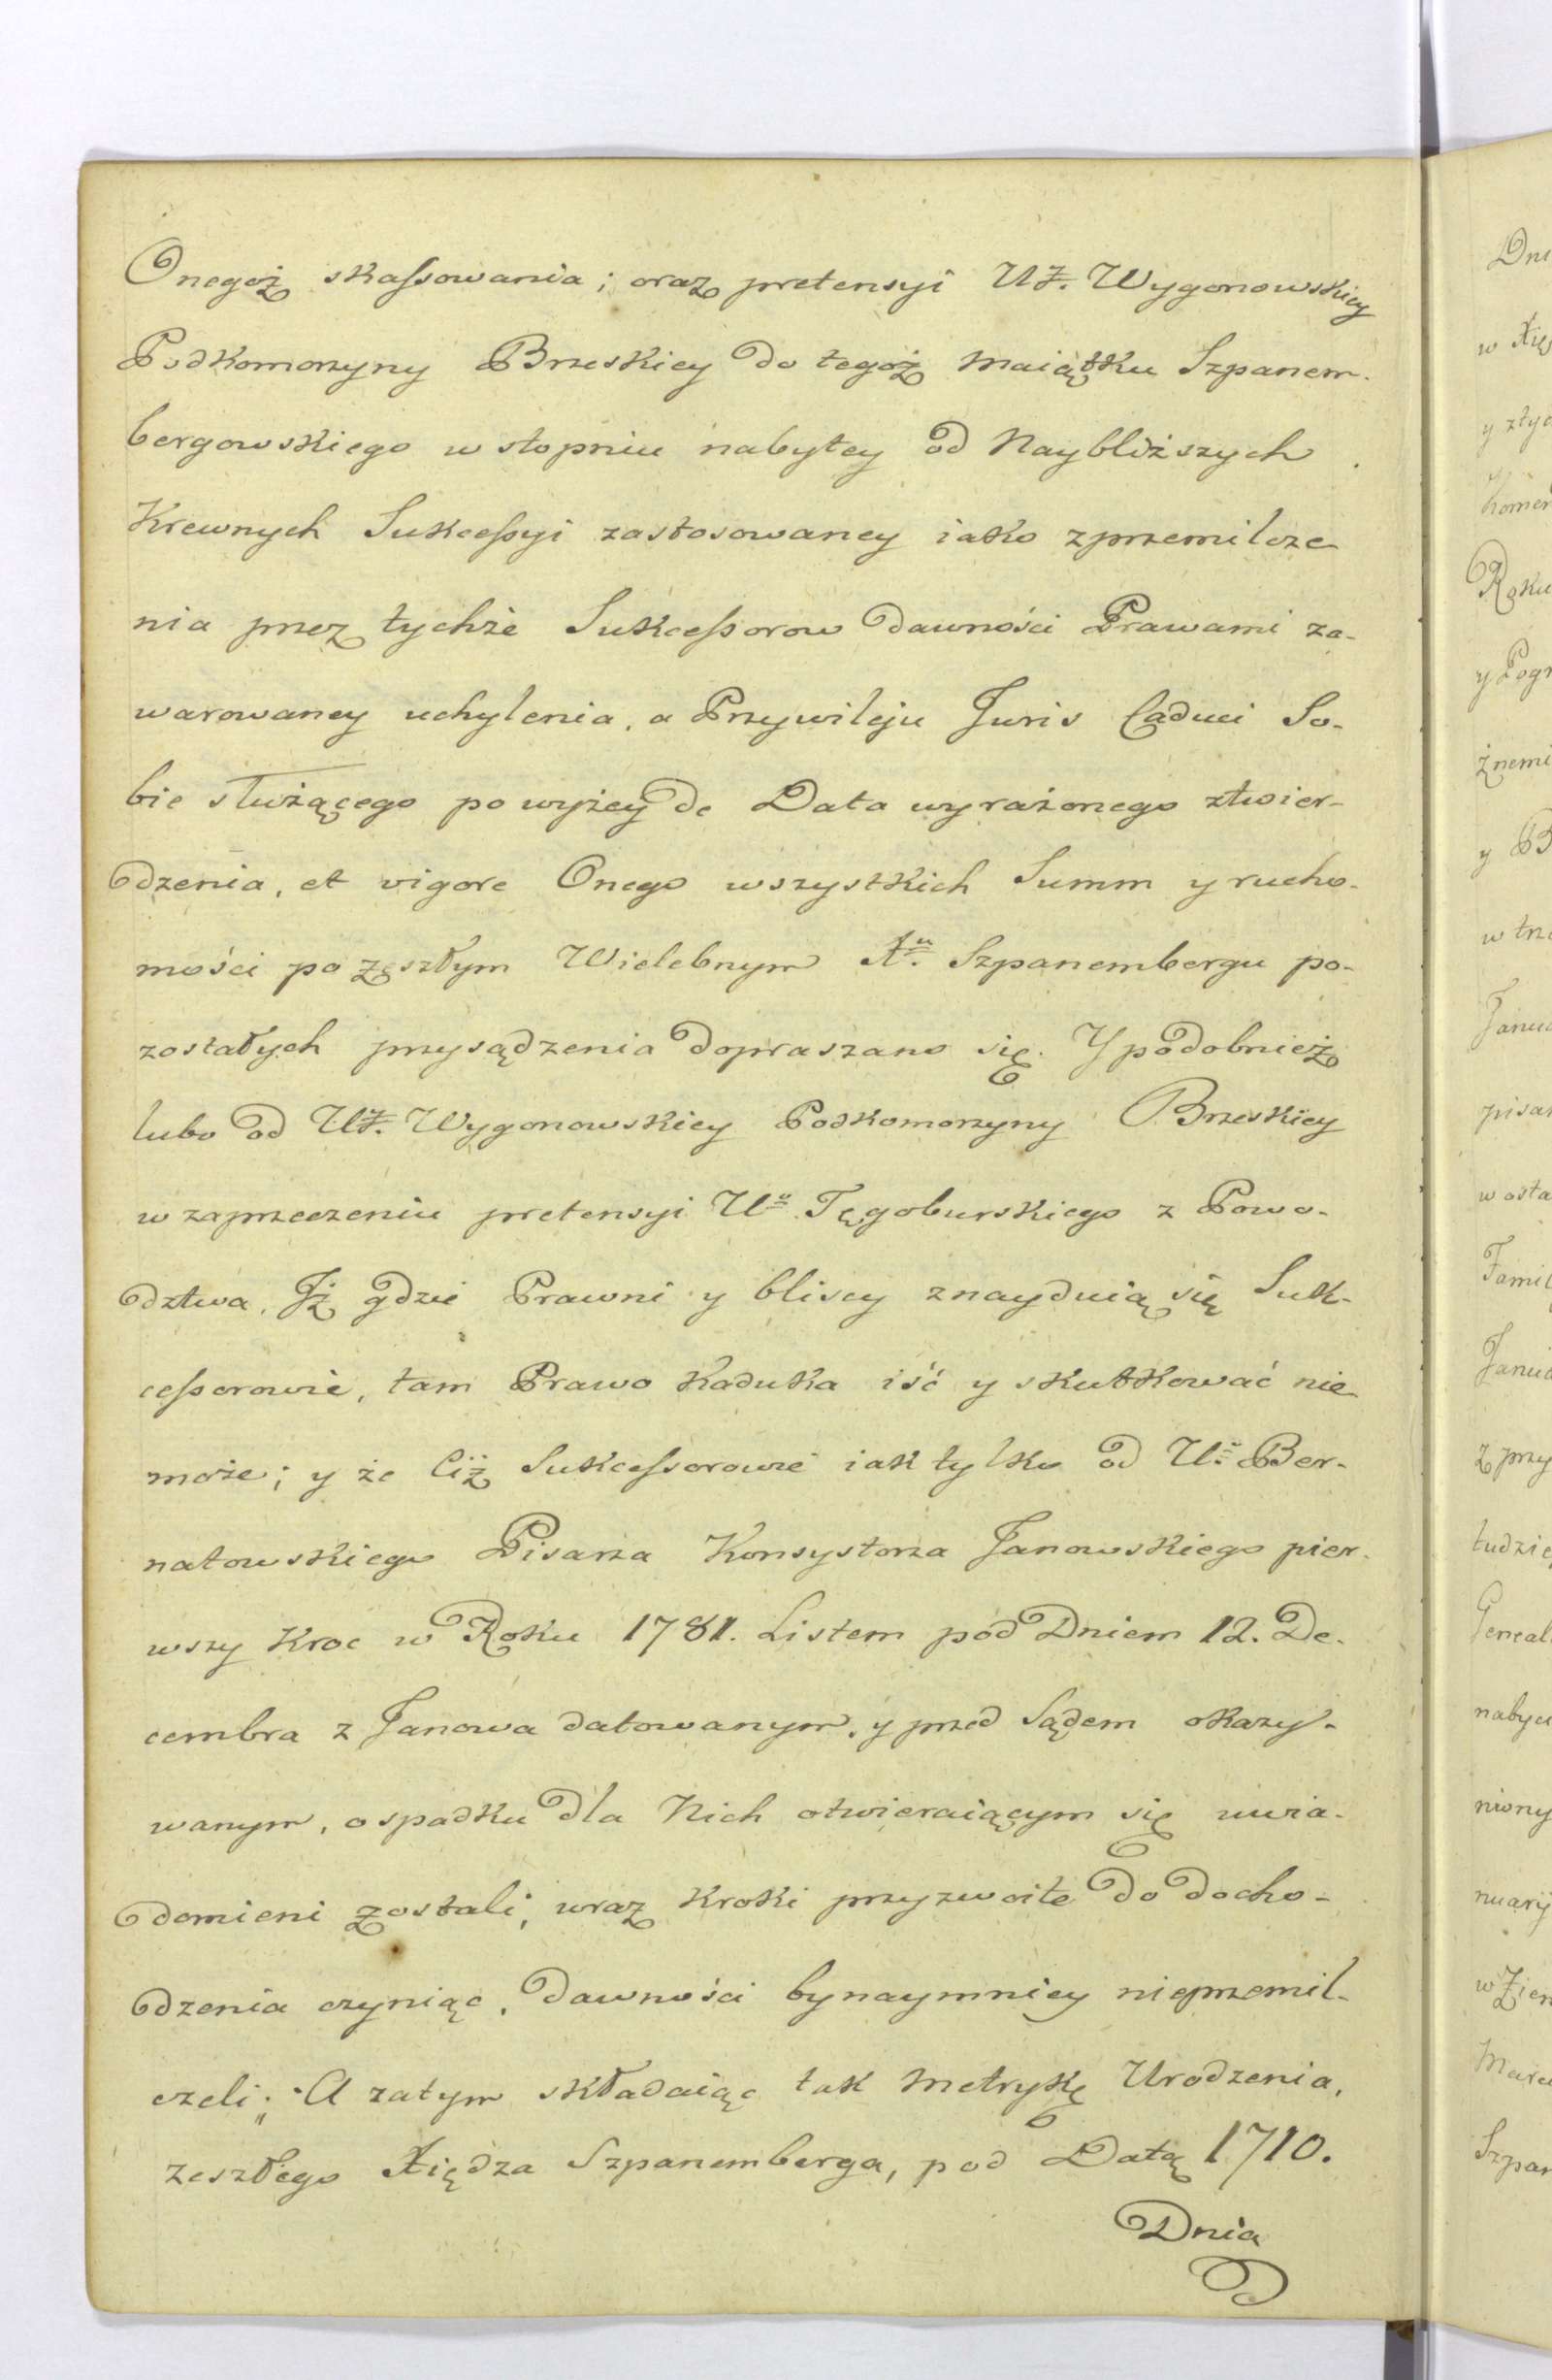 Onegoż skaſsowania; oraz pretensyi UZ. Wygonowskiey
Podkomorzyny Brzeskiey do tegoż Maiątku Szpanem-
bergowskiego w stopniu nabytey od Naybliższych
Krewnych Sukceſsyi zastosowaney iako z przemilcze
nia przez tychże Sukceſsorow dawności Prawami za-
warowaney uchylenia, a Przywileju Juris Caduci So-
bie służącego powyżey de Data wyrażonego ztwier-
dzenia, et vigore Onego wszystkich Summ y rucho-
mości po zeszłym Wielebnym Xu. Szpanembergu po-
zostałych przysądzenia dopraszano się. Y podobnież
lubo od UZ. Wygonowskiey Podkomorzyny Brzeskiey
w zaprzeczeniu pretensyi Uo Tęgoburskiego z Powo-
dztwa, Iż gdzie Prawni y bliscy znayduią się Suk-
ceſsorowie, tam Prawo Kaduka iść y skutkować nie
może; y że Ciż Sukceſsorowie iak tylko od Uo Ber-
natowskiego Pisarza Konsystorza Janowskiego pier-
wszy Kroc w Roku 1781. Listem pod Dniem 12. De-
cembra z Janowa datowanym, y przed Sądem okazy-
wanym, o spadku dla Nich otwieraiącym się uwia-
domieni zostali, wraz Kroki przyzwoite do docho-
dzenia czyniąc, dawności bynaymniey nieprzemil-
czeli; A zatym składaiąc tak Metrykę Urodzenia,
zeszłego Xiędza Szpanemberga, pod Datą 1710.
Dnia